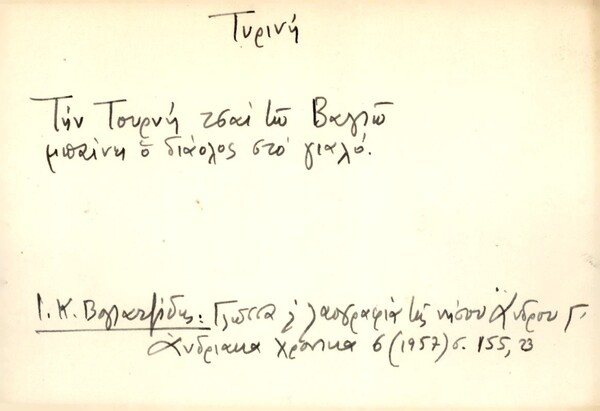 Τυρινή
Τὴν Τουρνή τσαὶ τῶ Βαγιῶ
μπαίνη ὁ διάολος στὸ γιαλό.
Ι. Κ. Βογιατζίδης: Γλῶσσα κ λαογραφία τῆς νήσου Ἄνδρου Γ.
Ἀνδριακὰ Χρονικα 6 (1957) σ. 155, 23